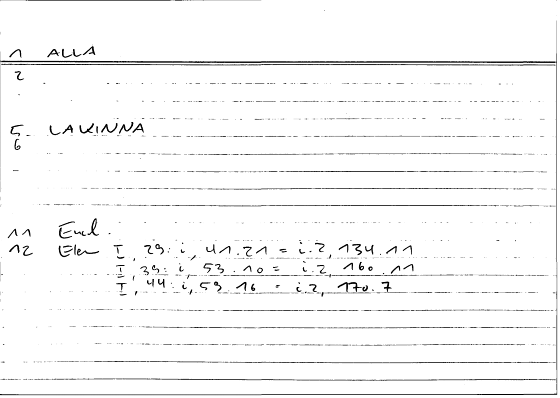 1 ALLA
2
5 LAKINNA
6
11 Eucl.
12 Elem I, 29: i, 41.21 = i.2, 134.11
I, 39: i, 53.10 = i.2, 160.11
I, 44: i, 59.16 = i.2, 170.7